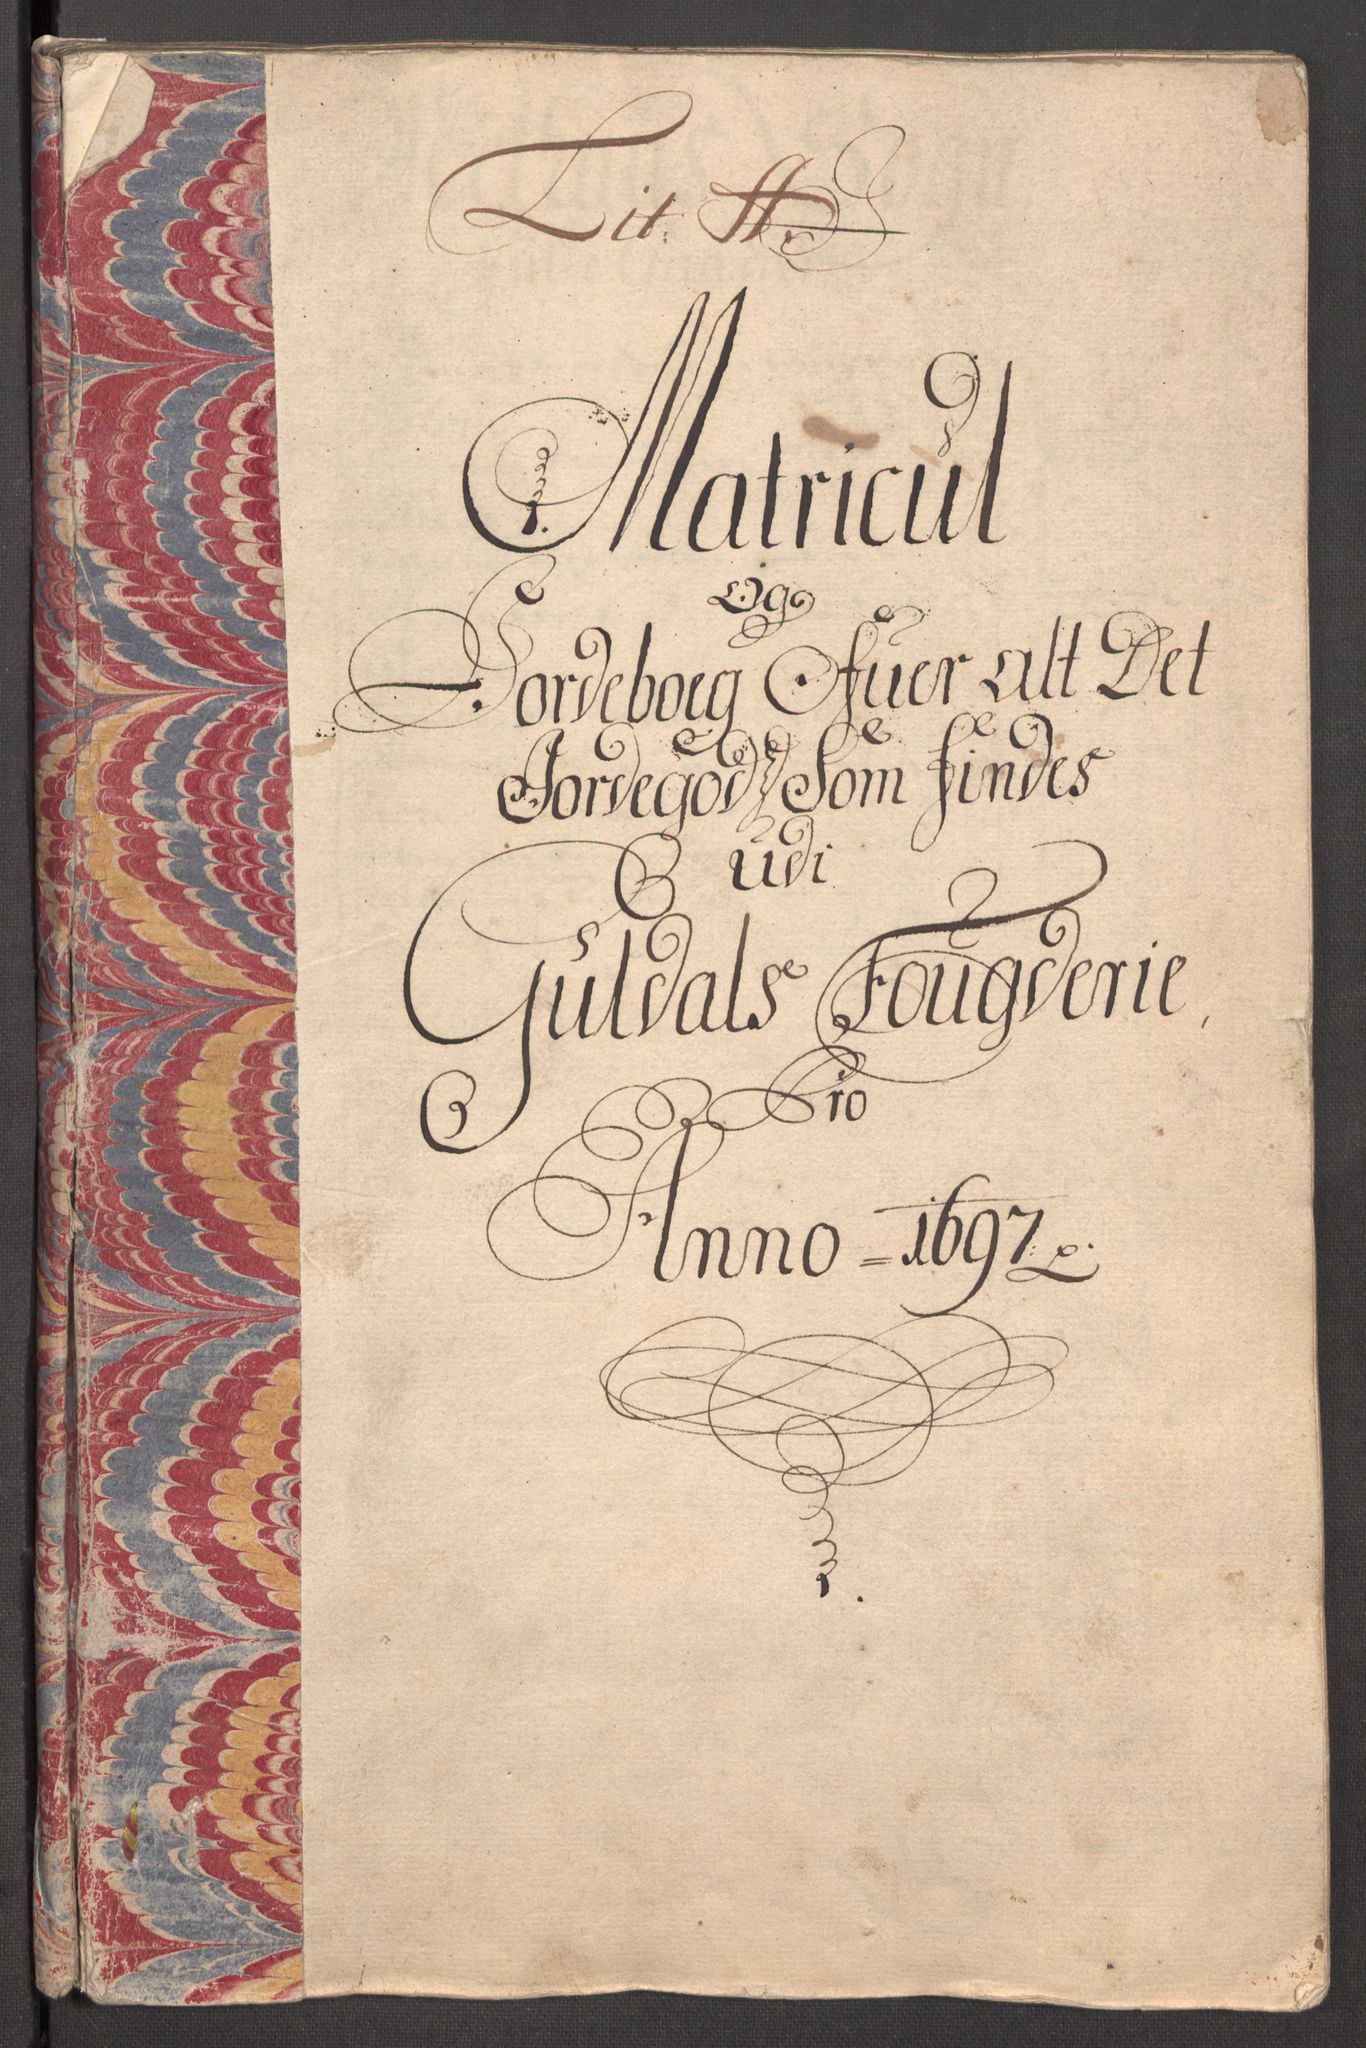 Lit. A.
Matricul
Og
Jordeboeg Ofuer alt Det
Jordegods Som findes
udi
Guldals Fougderie,
Pro
Anno = 1697